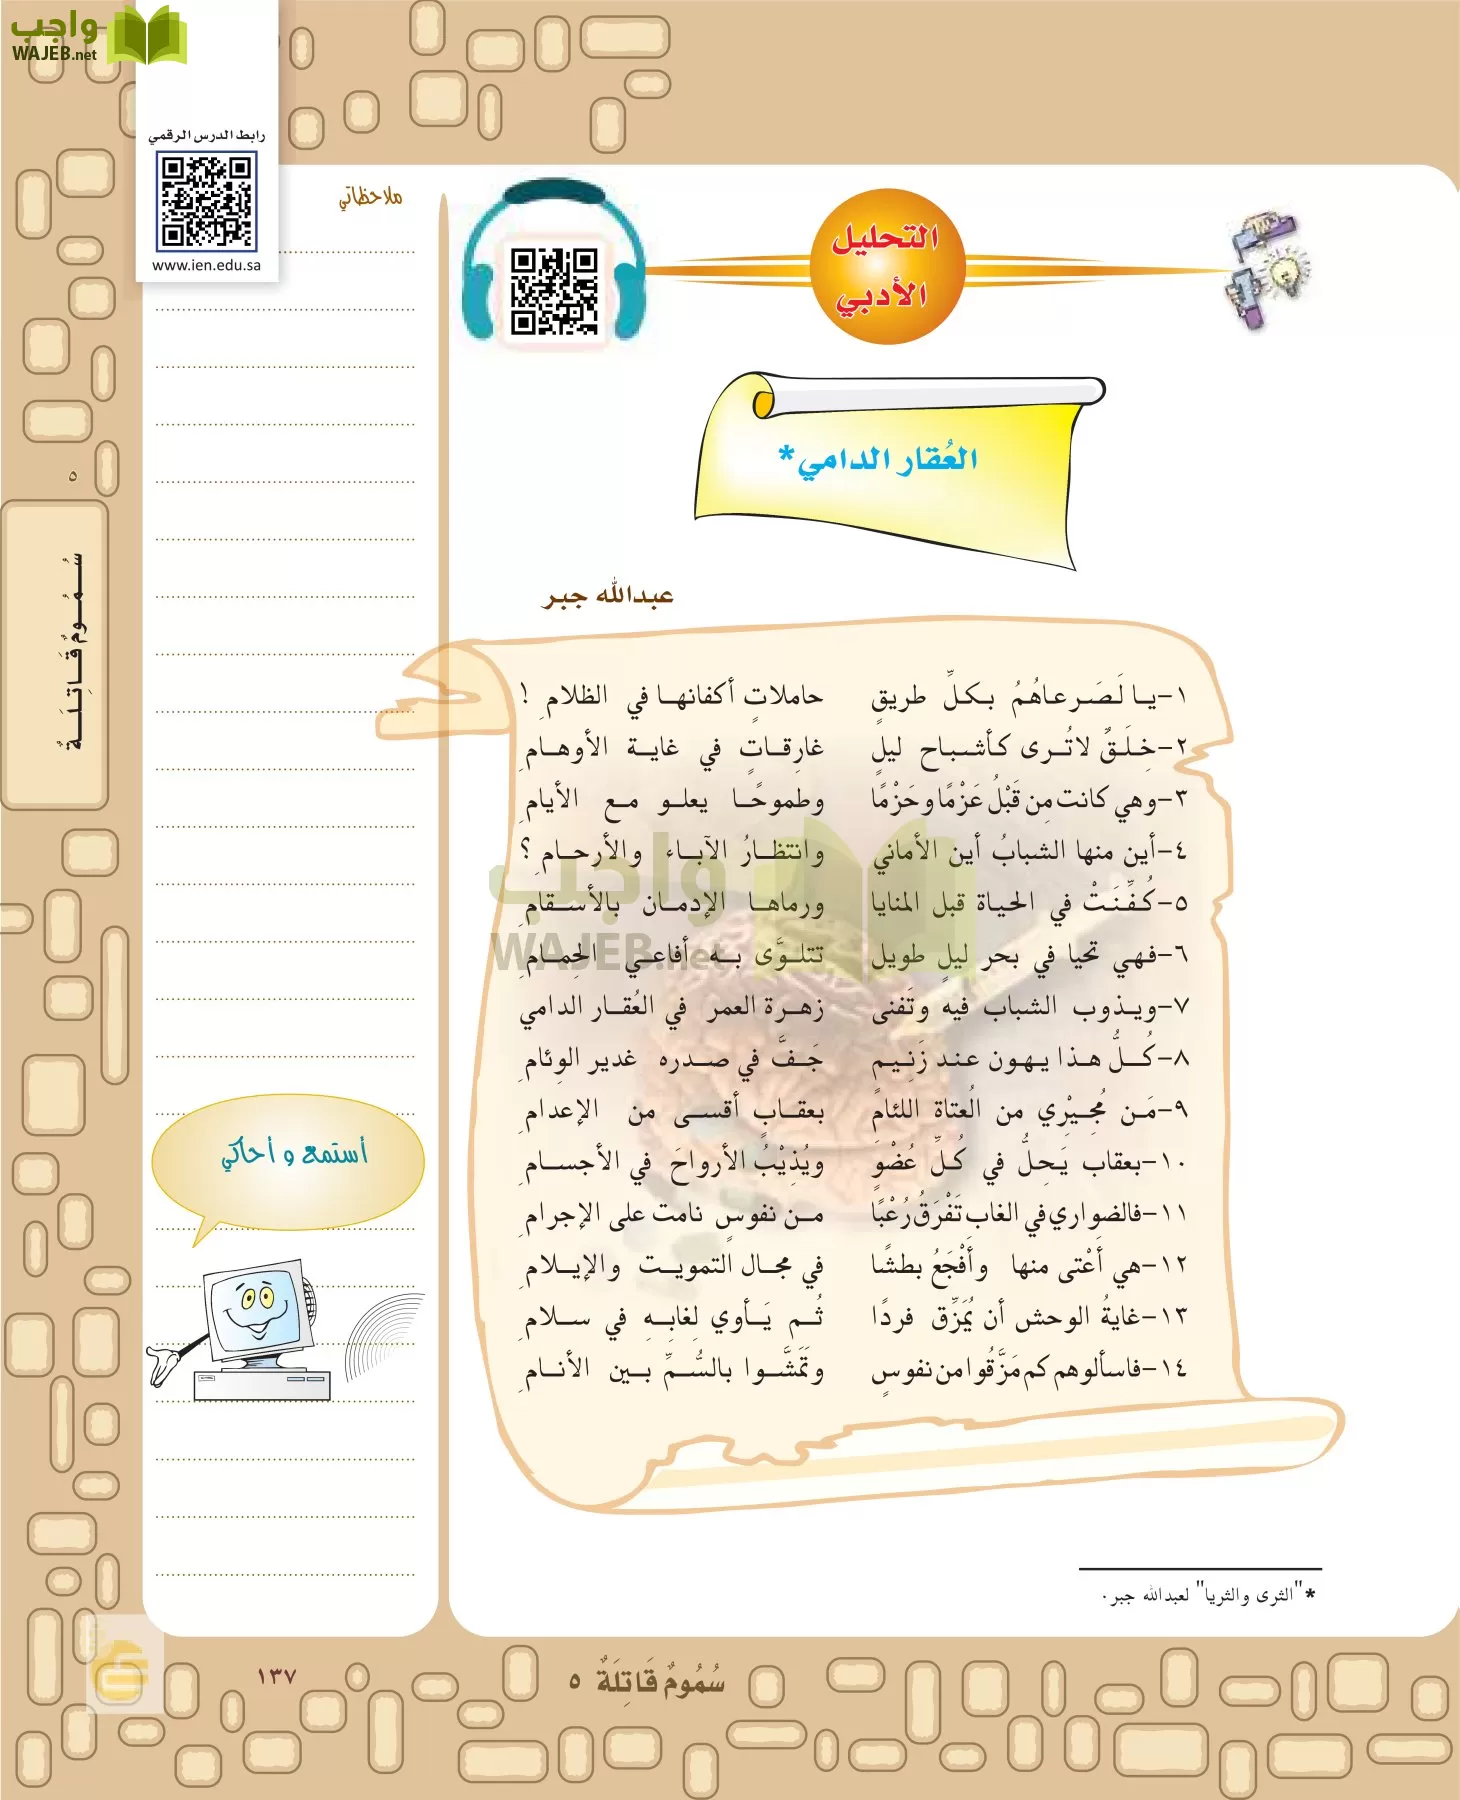 واجب
WAJEB.net
رابط الدرس الرقمي
www.ien.edu.sa
ملاحظاتي
التحليل
الأدبي
العُقار الدامي*
عبدالله جبر
١-يا لَصَرعاهُمُ بكلِّ طريقٍ حاملاتٍ أكفانها في الظلامِ !
٢-خِلَقٌ لاتُرى كأشباح ليلٍ غارِقاتٍ في غاية الأوهامِ
٣-وهي كانت مِن قَبْلُ عَزْمًا وحَزْمًا وطموحًا يعلو مع الأيامِ
٤-أين منها الشبابُ أين الأماني وانتظارُ الآباء والأرحامِ ؟
٥-كُفِّنَتْ في الحياة قبل المنايا ورماها الإدمان بالأسقامِ
٦-فهي تحيا في بحر ليلٍ طويل تتلوَّى به أفاعي الحِمامِ
٧-ويذوب الشباب فيه وتَفنى زهرة العمر في العُقار الدامي
٨-كُلُّ هذا يهون عند زَنِيمٍ جَفَّ في صدره غدير الوِئامِ
٩-مَن مُجِيْرِي من العُتاة اللئامِ بعقابٍ أقسى من الإعدامِ
١٠-بعقاب يَحِلُّ في كُلِّ عُضْوٍ ويُذِيْبُ الأرواحَ في الأجسامِ
١١-فالضواري في الغابِ تَفْرَقُ رُعْبًا من نفوسٍ نامت على الإجرامِ
١٢-هي أَعْتى منها وأَفْجَعُ بطشًا في مجال التمويت والإيلامِ
١٣-غايةُ الوحش أن يُمَزِّق فردًا ثُم يَأوي لِغابِهِ في سلامِ
١٤-فاسألوهم كم مَزَّقُوا من نفوسٍ وتَمَشَّوا بالسُّمِّ بين الأنامِ
واجب
WAJEB.net
أستمع و أحاكي
*"الثرى والثريا" لعبدالله جبر.
٥
سُمُومٌ قَاتِلَةٌ
سُمُومٌ قَاتِلَةٌ ٥
١٣٧